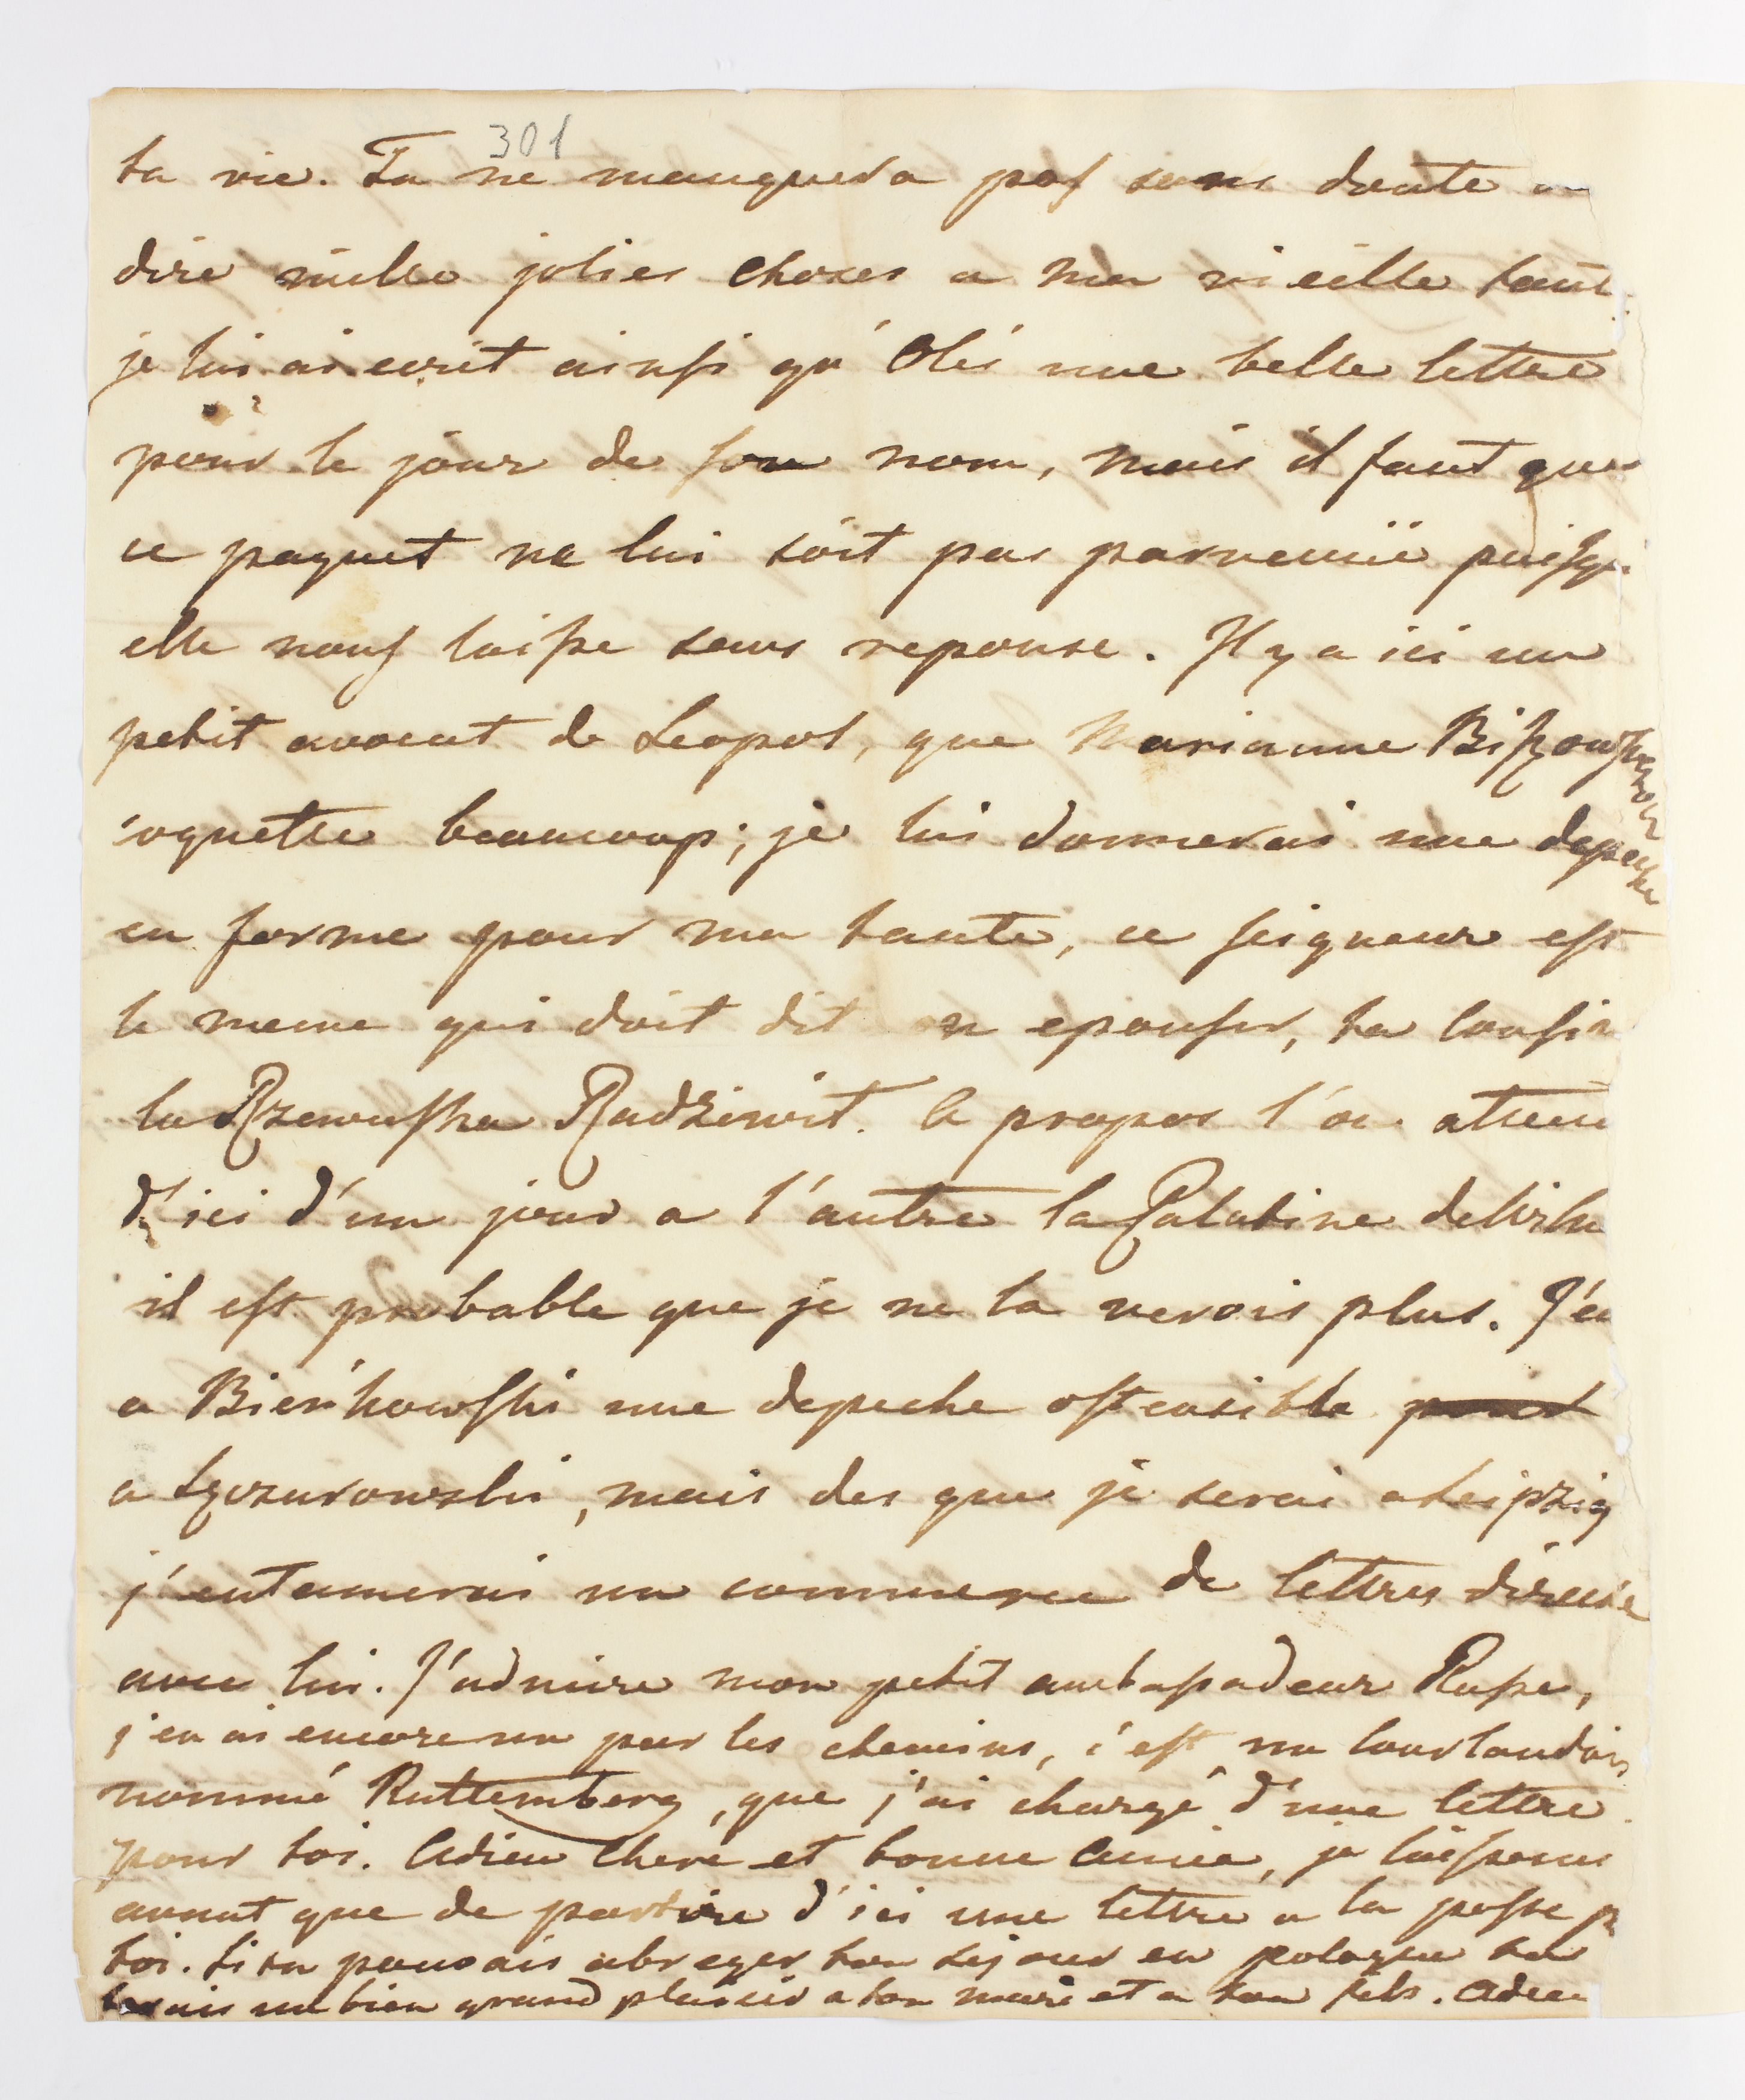 301
ta vie. Tu ne manquera pas sans doute
dire mille jolies choses a ma vieille tant
je lui ai ecrit ainsi qu' Olés une belle lettre
pour le jour de son nom, mais il faut que
ce paquet ne lui soit pas parvenüe puisqu
elle nous laisse sans reponse. Il y a ici un
petit avocat de Leopol, que Marianne
coquette beaucoup; je lui donnerai une depeche
en forme pour ma tante, ce seigneur est
le meme qui doit dit on epouser, ta cousin
la Rzewuska Radziwit. a propos l'on atten
d'ici d'un jour a l'autre la Palatine
il est probable que je ne la verois plus. J'ai
a Bieńkowski une depeche ostensible pour
a, mais des que je serai a Leipzig
j'entamerai un commerce de lettres directe
avec lui. J'admire mon petit ambassadeur Russe,
j'en ai encore un par les chemins, c'est un Courlandois
nommé Ruttemberg, que j'ai chargé d'une lettre
pour toi. Adieu chere et bonne amie, je laisserai
avant que de partire d'ici une lettre a la poste p
toi. Si tu pouvais abreger ton sejour en pologne tu
ferais un bien grand plaisir a ton mari et a ton fils. Adieu